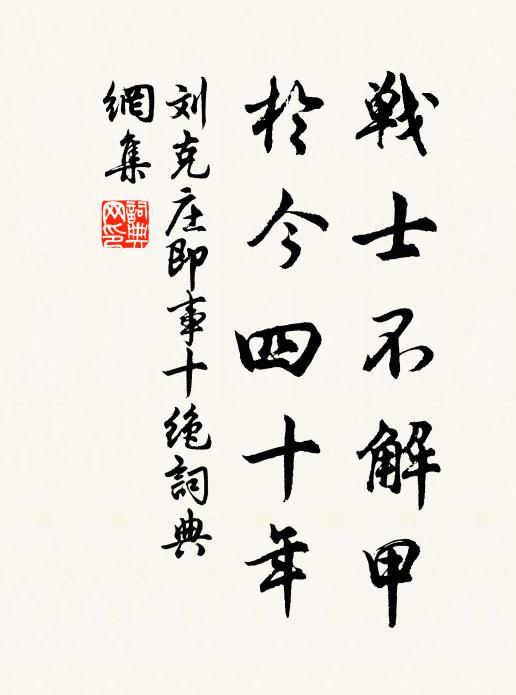 戦士不解甲
於今四十年
刘克庄即事十绝詞典
網集
詞典网印